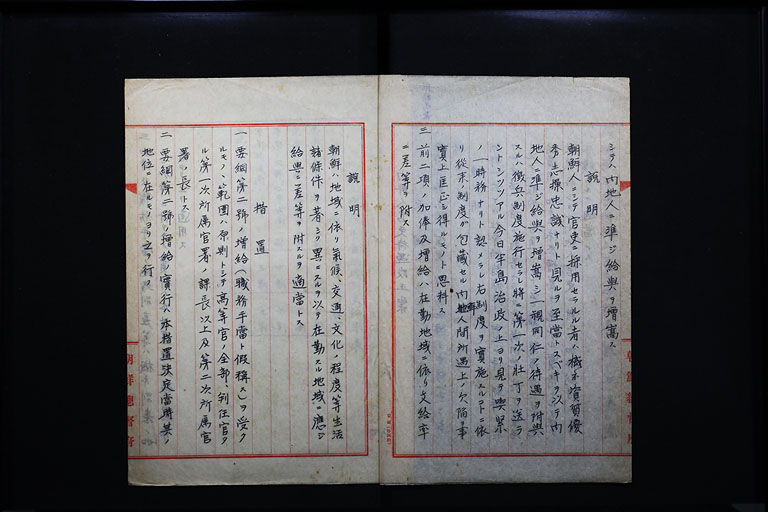 シタル内地人ニ準ジ給與ヲ增嵩ス
說明
朝鮮人ニシテ官吏ニ採用セラルル者ハ概ネ資質優
秀志操忠誠ナリト見ルヲ至當トスベキヲ以テ内
地人ニ準ジ給與ヲ增嵩シ一視同仁ノ待遇ヲ附與
スルハ徵兵制度施行セラレ將ニ第一次ノ壯丁ヲ送ラ
ントシツツアル今日半島治政ノ上ヨリ見テ喫緊
ノ一時務ナリト認メラレ右制度ヲ實施スルコトニ依
リ從來ノ制度ガ包藏セル内鮮人間所遇上ノ欠陷ヲ事
實上匡正シ得ルモノト思料ス
三 前二項ノ加俸及增給ハ在勤地域ニ依リ支給率
ニ差等ヲ附ス
朝鮮總督府
說明
朝鮮ハ地域ニ依リ氣候、交通、文化ノ程度等生活
諸條件ヲ著シク異ニスルヲ以テ在勤スル地域ニ應ジ
給與ニ差等ヲ附スルヲ適當トス
措置
一 要綱第二號ノ增給(職務手當ト假稱ス)ヲ受ク
ルモノノ範圍ハ原則トシテ高等官ノ全部、判任官タ
ル第一次所屬官署ノ課長以上及第二次所屬官
署ノ長トス
二 要綱第二號ノ增給ノ實行ハ本措置決定當時其ノ
地位ニ在ルモノヨリ之ヲ行フ
朝鮮總督府